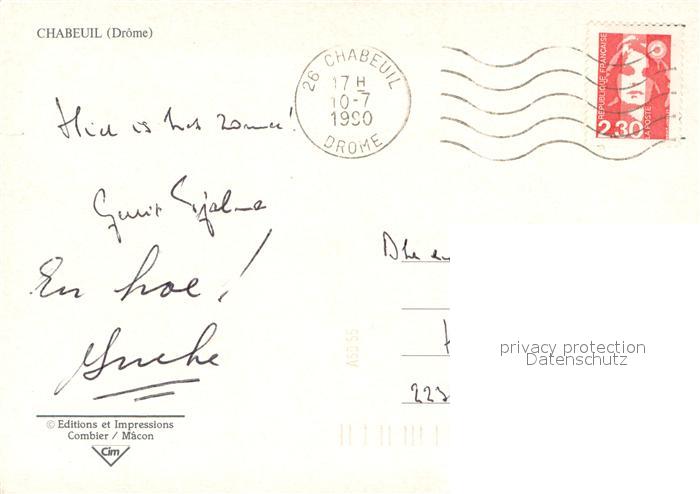 CHABEUIL (Drôme)
26 CHABEUIL
17 H
10-7
1990
DROME
RÉPUBLIQUE FRANÇAISE
2,30
LA POSTE
Hier is het zomer!
En hoe!
Dhr en
223
privacy protection
Datenschutz
© Editions et Impressions
Combier / Mâcon
Cim